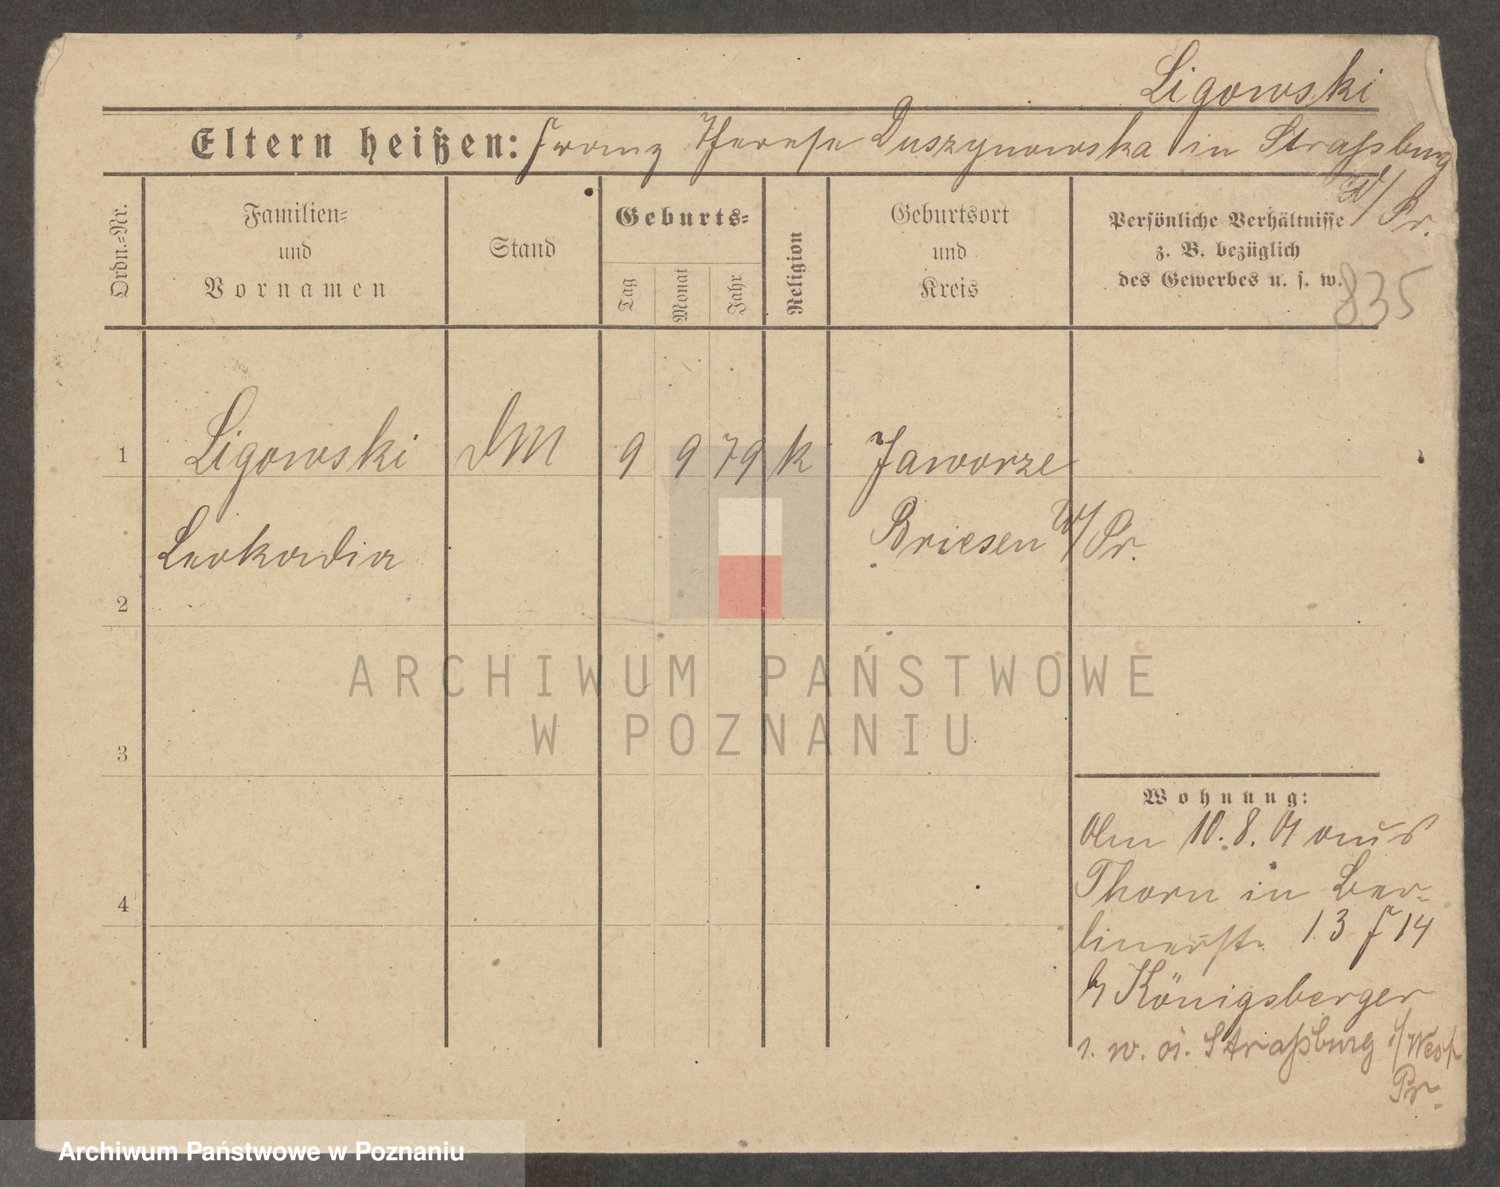 Ligowski
Eltern heißen: Franz Therese Duszynowska in Straßburg
W/Pr.
Ordn.=Nr.
Familien=
und
Vornamen
Stand
Geburts=
Tag
Monat
Jahr
Religion
Geburtsort
und
Kreis
Persönliche Verhältnisse
z. B. bezüglich
des Gewerbes u. s. w.
835
1 Ligowski DM 9 9 79 k Jaworze
Leokadia Briesen W/Pr.
2
3
4
Wohnung:
Am 10.8.01 aus
Thorn in Ber-
linerstr. 13 F 14
b/ Königsberger
Straßburg i/West
Pr.
ARCHIWUM PAŃSTWOWE
W POZNANIU
Archiwum Państwowe w Poznaniu